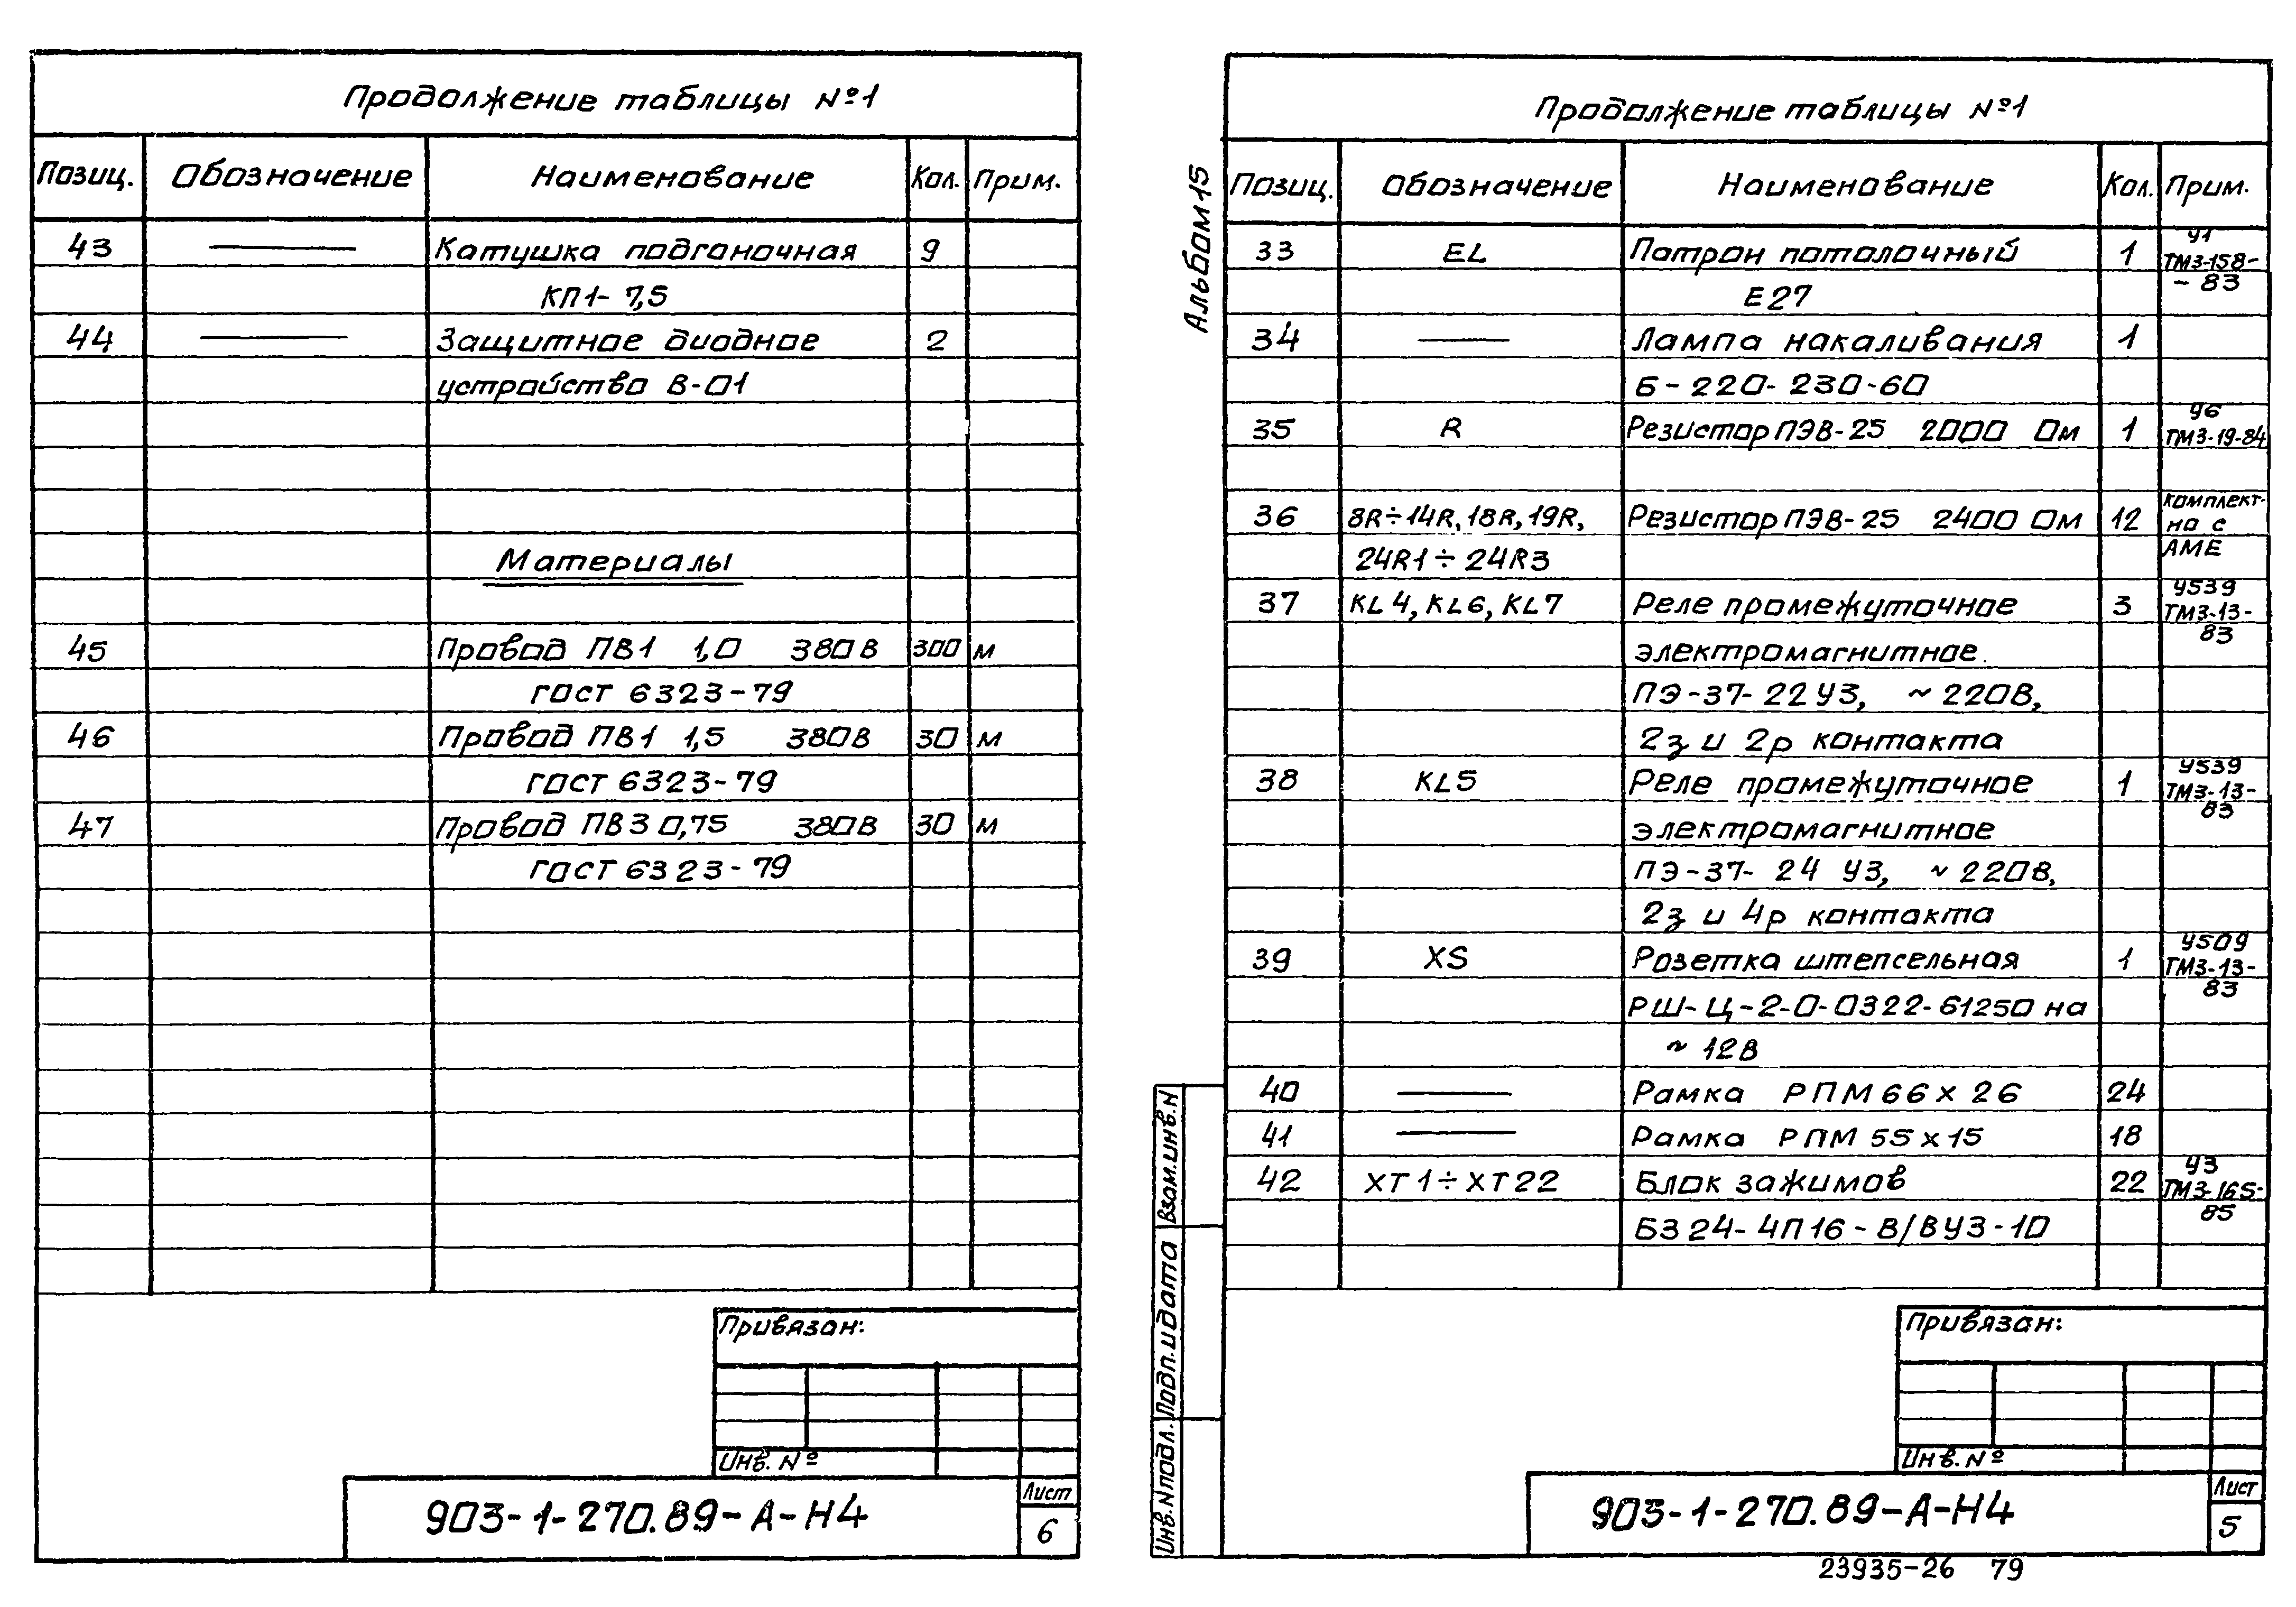 Продолжение таблицы №1
Позиц. Обозначение Наименование Кол. Прим.
43 — Катушка подгоночная 9
КП1-7,5
44 — Защитное диодное 2
устройство В-01
Материалы
45 Провод ПВ1 1,0 380В 300 м
ГОСТ 6323-79
46 Провод ПВ1 1,5 380В 30 м
ГОСТ 6323-79
47 Провод ПВ3 0,75 380В 30 м
ГОСТ 6323-79
Привязан:
Инв. №
903-1-270.89-А-Н4
Лист
6
Альбом 15
Продолжение таблицы №1
Позиц. Обозначение Наименование Кол. Прим.
33 EL Патрон потолочный 1 У1
ТМ3-158-
Е27 -83
34 — Лампа накаливания 1
Б-220-230-60
35 R Резистор ПЭВ-25 2000 Ом 1 У6
ТМ3-19-84
36 8R÷14R, 18R, 19R, Резистор ПЭВ-25 2400 Ом 12 комплект-
но с
24R1÷24R3 АМЕ
37 KL4, KL6, KL7 Реле промежуточное 3 У539
ТМ3-13-
83
электромагнитное
ПЭ-37-22 У3, ~220В,
2з и 2р контакта
38 KL5 Реле промежуточное 1 У539
ТМ3-13-
83
электромагнитное
ПЭ-37-24 У3, ~220В,
2з и 4р контакта
39 XS Розетка штепсельная 1 У509
ТМ3-13-
83
РШ-Ц-2-0-0322-61250 на
~12В
40 — Рамка РПМ 66×26 24
41 — Рамка РПМ 55×15 18
42 XT1÷XT22 Блок зажимов 22 У3
ТМ3-165-
85
БЗ24-4П16-В/ВУ3-10
Взам.инв.N
Подп. и дата
Инв.N подл.
Привязан:
Инв. №
903-1-270.89-А-Н4
Лист
5
23935-26 79